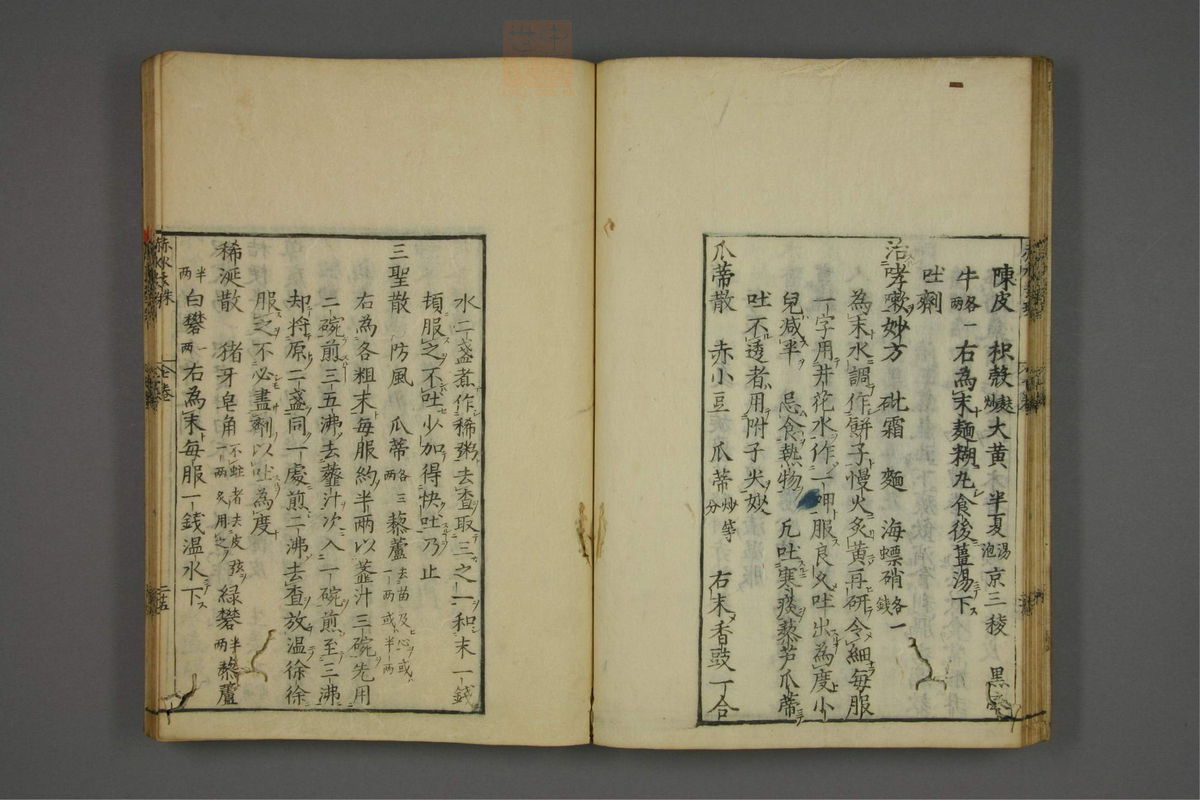 陳皮 枳殻麩炒 大黄 半夏湯泡 京三稜 黒
牛各一兩 右為末麵糊丸食後薑湯下
吐劑
治哮嗽妙方 砒霜 麵 海螵硝各一錢
為末水調作餅子慢火炙黄再研令細每服
一字用井花水作一呷服良久吐出為度小
兒减半 忌食熱物 凡吐寒痰藜芦瓜蒂
吐不透者用附子尖妙
瓜蒂散 赤小豆 瓜蒂炒等分 右末香豉一合
水二盞煮作稀粥去査取三之一和末一錢
頓服之不吐少加得快吐乃止
三聖散 防風 瓜蒂各三兩 藜蘆去苗及心或一兩或半兩
右為各粗末每服約半兩以虀汁三碗先用
二碗煎三五沸去虀汁次入一碗煎至三沸
却将原二盞同一處煎二沸去査放温徐徐
服之不必盡劑以吐為度
稀涎散 猪牙皂角不蛀者去皮弦一兩炙用之 緑礬半兩 藜蘆
半兩 白礬一兩 右為末每服一錢温水下